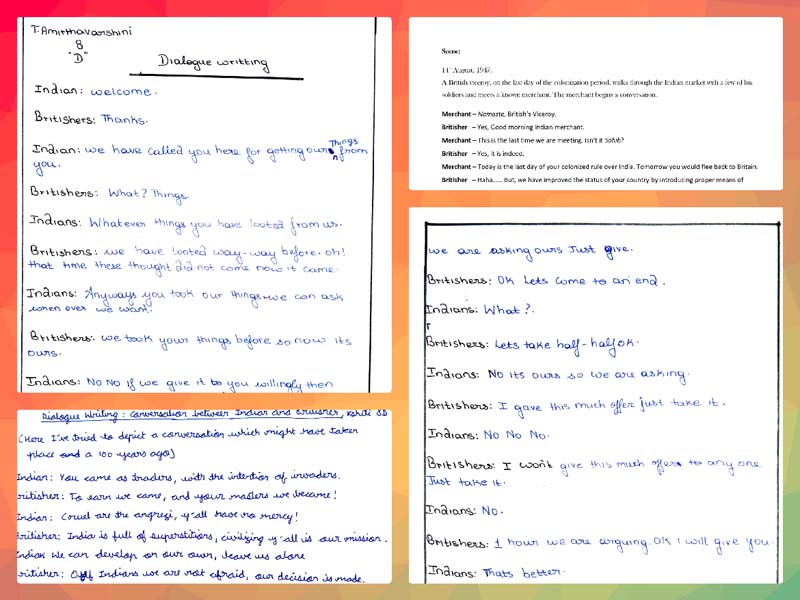 T. Amirthavarshini
8
"D"
Dialogue writting
Indian: welcome.
Britishers: Thanks.
Indian: we have called you here for getting ours Things from
you.
Britishers: What? Things
Indians: Whatever things you have looted from us.
Britishers: we have looted way-way before. oh!
that time these thought did not come now it came.
Indians: Anyways you took our things we can ask
when ever we want.
Britishers: we took your things before so now its
ours.
Indians: No No if we give it to you willingly then
Scene:
14 August, 1947.
A British viceroy, on the last day of the colonization period, walks through the Indian market with a few of his
soldiers and meets a known merchant. The merchant begins a conversation.
Merchant – Namaste, British's Viceroy.
Britisher – Yes, Good morning Indian merchant.
Merchant – This is the last time we are meeting. Isn't it Sahib?
Britisher – Yes, it is indeed.
Merchant – Today is the last day of your colonized rule over India. Tomorrow you would flee back to Britain.
Britisher – Haha..... But, we have improved the status of your country by introducing proper means of
we are asking ours Just give.
Britishers: OK Lets come to an end.
Indians: What?
Britishers: Lets take half-half ok.
Indians: No its ours so we are asking.
Britishers: I gave this much offer just take it.
Indians: No No No.
Britishers: I won't give this much offer to any one
Just take it.
Indians: No.
Britishers: 1 hour we are arguing. OK I will give you.
Indians: Thats better.
Dialogue Writing: Conversation between Indian and Britisher, Kshiti 8D
(Here I've tried to depict a conversation which might have taken
place and a 100 years ago)
Indian: You came as traders, with the intention of invaders.
Britisher: To earn we came, and your masters we became!
Indian: Cruel are the angrezi, y'all have no mercy!
Britisher: India is full of superstitions, civilizing y'all is our mission.
Indian We can develop on our own, leave us alone
Britisher: Off Indians we are not afraid, our decision is made.